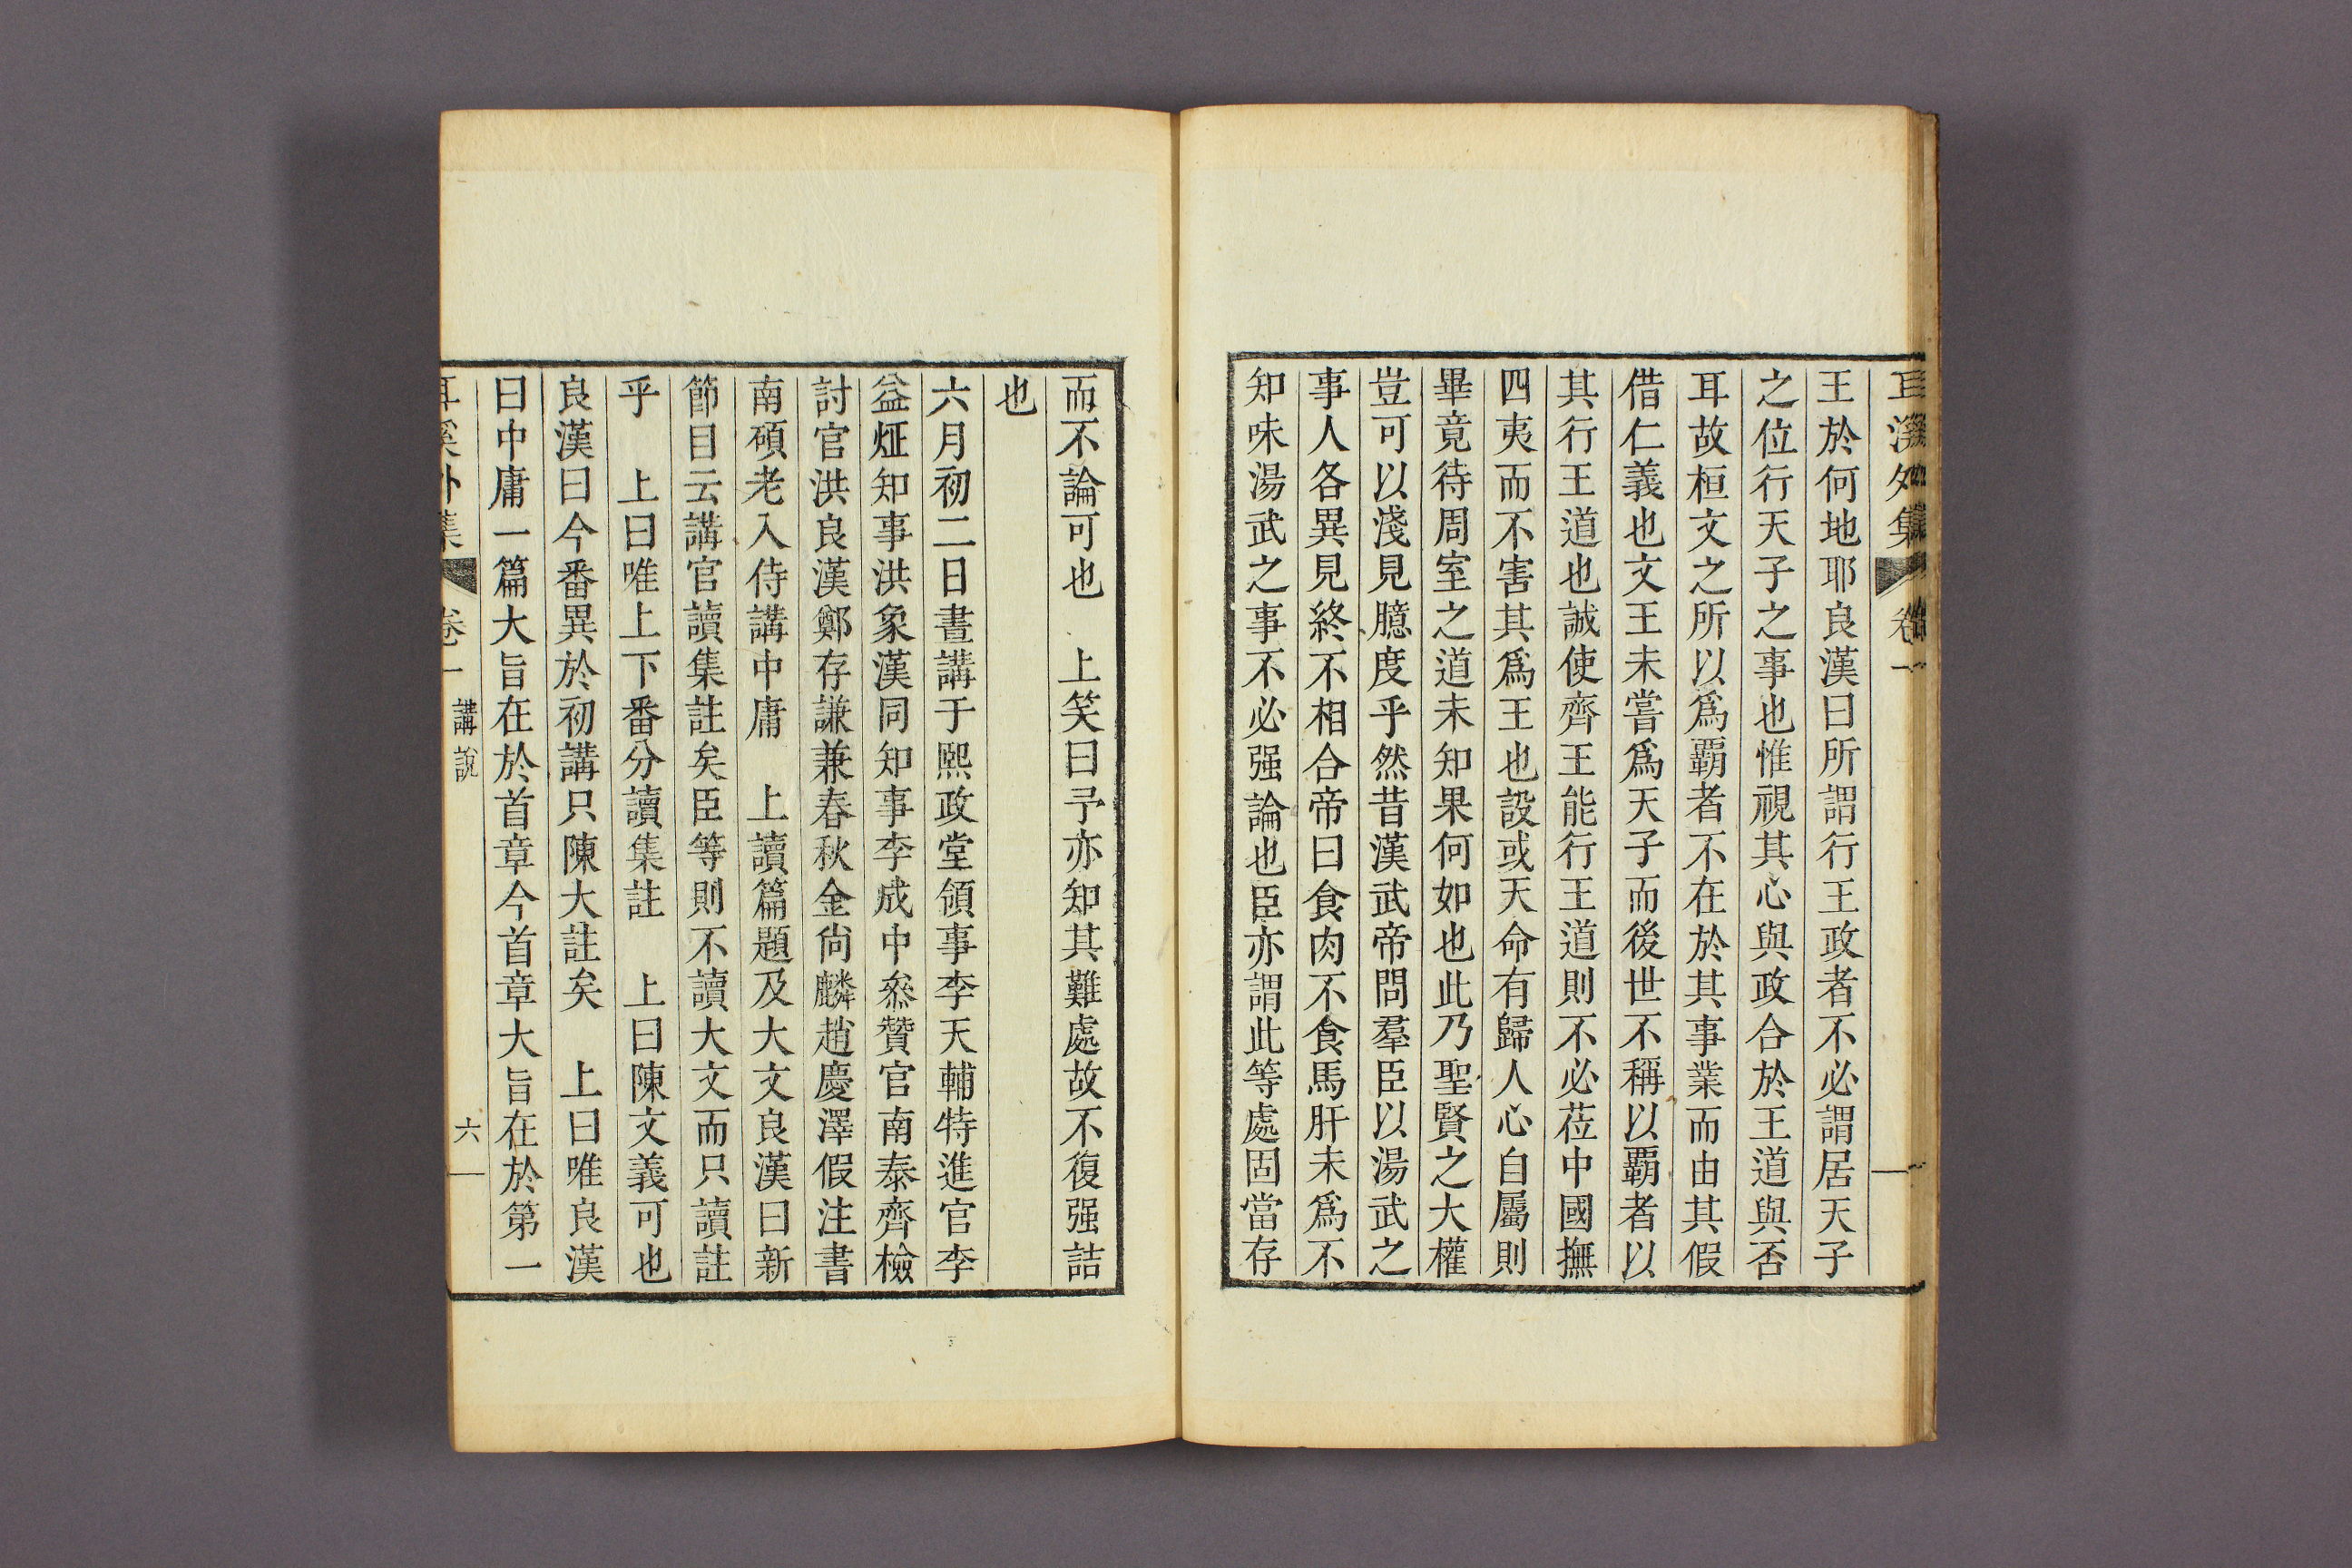 耳溪外集 卷一
王於何地耶良漢曰所謂行王政者不必謂居天子
之位行天子之事也惟視其心與政合於王道與否
耳故桓文之所以爲覇者不在於其事業而由其假
借仁義也文王未嘗爲天子而後世不稱以覇者以
其行王道也誠使齊王能行王道則不必莅中國撫
四夷而不害其爲王也設或天命有歸人心自屬則
畢竟待周室之道未知果何如也此乃聖賢之大權
豈可以淺見臆度乎然昔漢武帝問羣臣以湯武之
事人各異見終不相合帝曰食肉不食馬肝未爲不
知味湯武之事不必强論也臣亦謂此等處固當存
而不論可也　上笑曰予亦知其難處故不復强詰
也
六月初二日晝講于熙政堂領事李天輔特進官李
益炡知事洪象漢同知事李成中叅贊官南泰齊檢
討官洪良漢鄭存謙兼春秋金尙麟趙慶澤假注書
南碩老入侍講中庸　上讀篇題及大文良漢曰新
節目云講官讀集註矣臣等則不讀大文而只讀註
乎　上曰唯上下番分讀集註　上曰陳文義可也
良漢曰今番異於初講只陳大註矣　上曰唯良漢
曰中庸一篇大旨在於首章今首章大旨在於第一
耳溪外集 卷一 講說 六